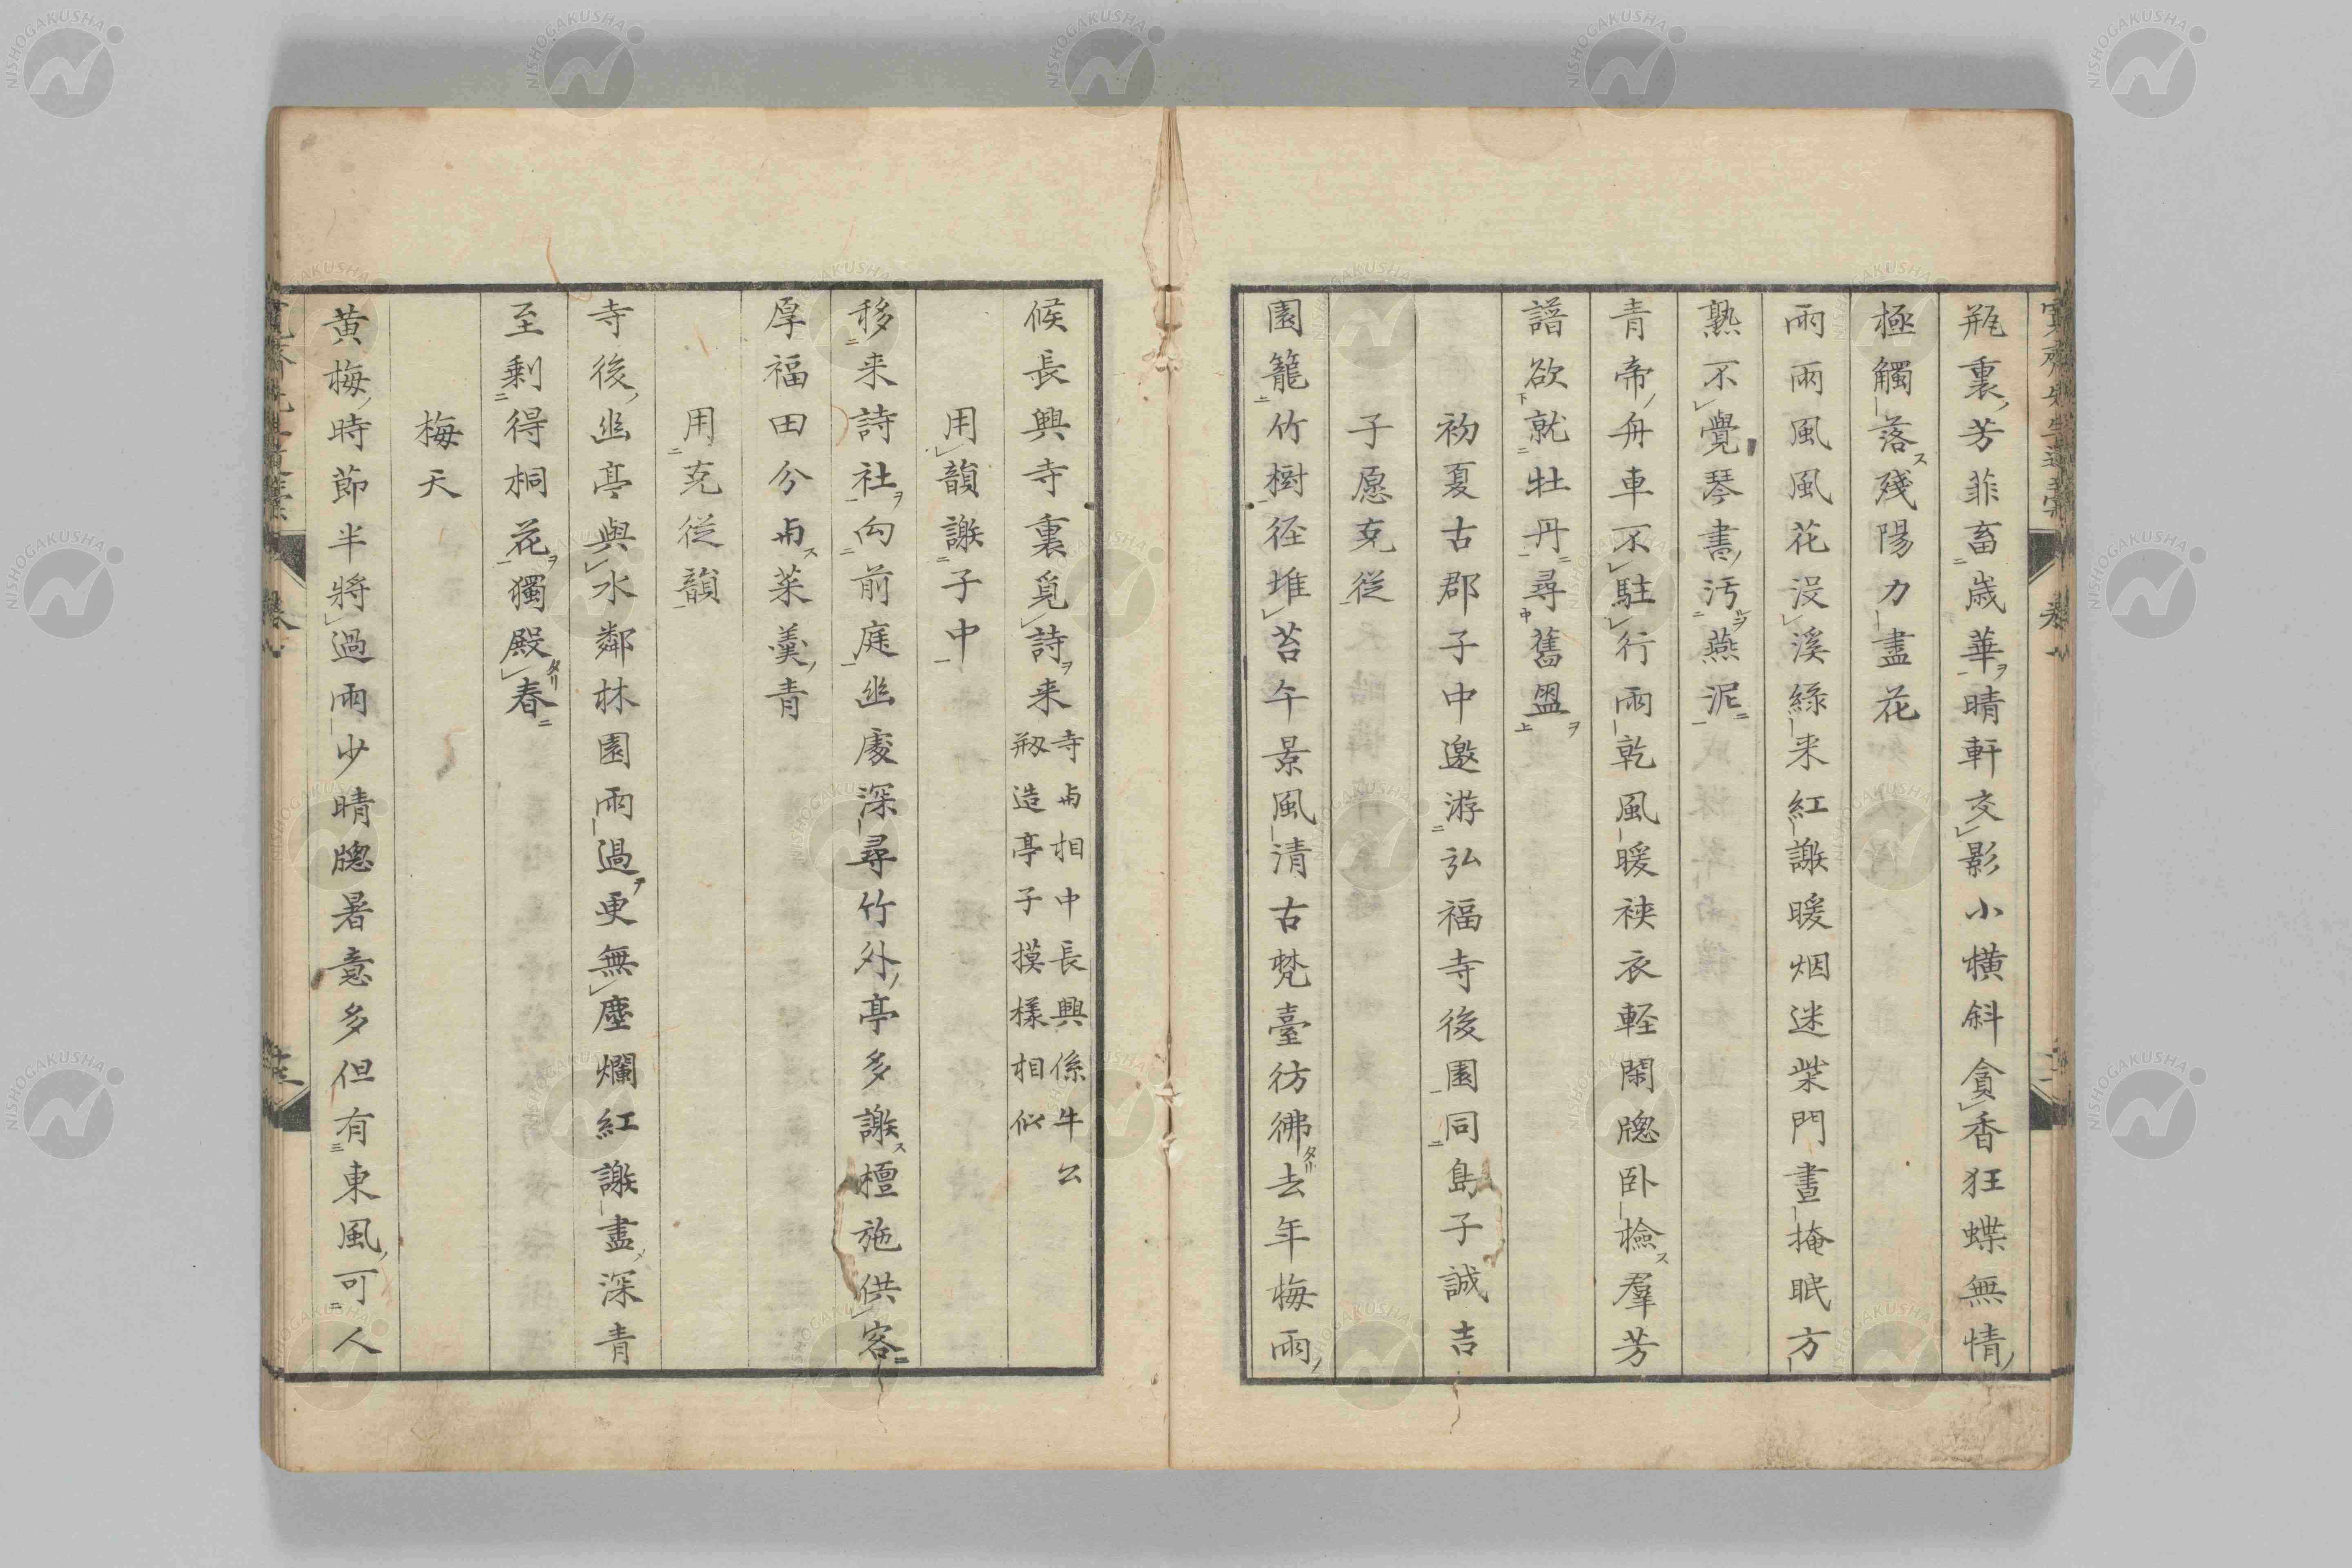 瓶裏芳菲畜歳華晴軒交影小横斜貪香狂蝶無情
極觸落殘陽力盡花
雨雨風風花没溪緑来紅謝暖烟迷柴門晝掩眠方
熟不覺琴書汚燕泥
青帝舟車不駐行雨乾風暖裌衣軽閑牕卧檢羣芳
譜欲就牡丹尋舊盟
初夏古郡子中邀游弘福寺後園同島子誠吉
子愿克従
園籠竹樹径堆苔午景風清古梵臺彷彿去年梅雨
候長興寺裏覓詩来
寺在相中長興係牛公
剏造亭子摸様相似
用韻謝子中
移来詩社向前庭幽處深尋竹外亭多謝檀施供客
厚福田分与菜羹青
用克従韻
寺後幽亭與水鄰林園雨過更無塵爛紅謝盡深青
至剩得桐花獨殿春
梅天
黄梅時節半將過雨少晴牕暑意多但有東風可人
NISHOGAKUSHA